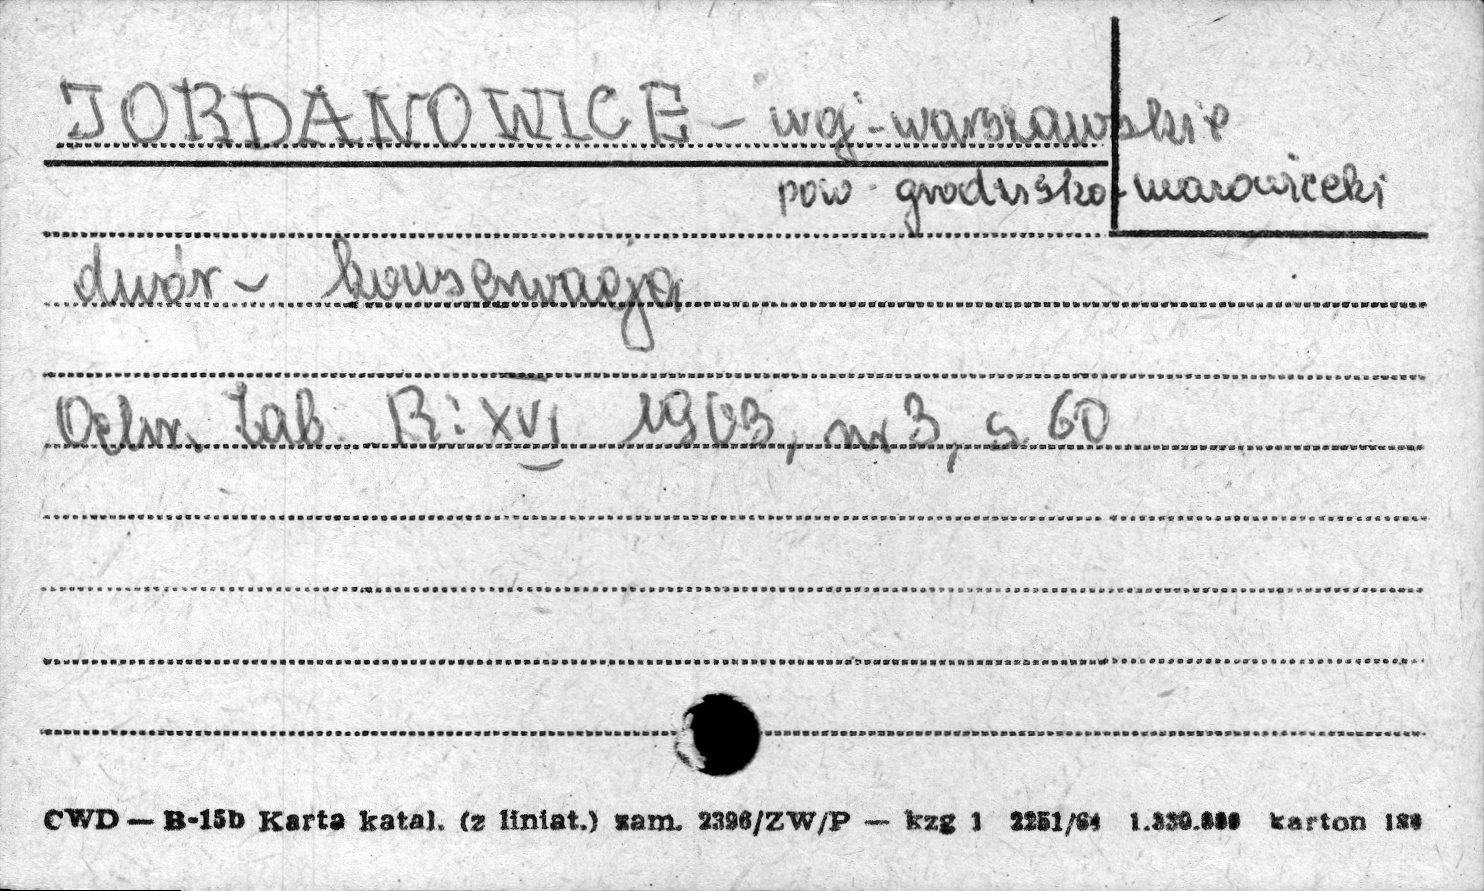 JORDANOWICE - woj. warszawskie
pow. grodzisko-mazowiecki
dwór - konserwacja
Ochr. Zab. R: XVI 1963, nr 3, s. 60
CWD — B-15b Karta katal. (z liniat.) zam. 2396/ZW/P — kzg 1 2251/64 karton